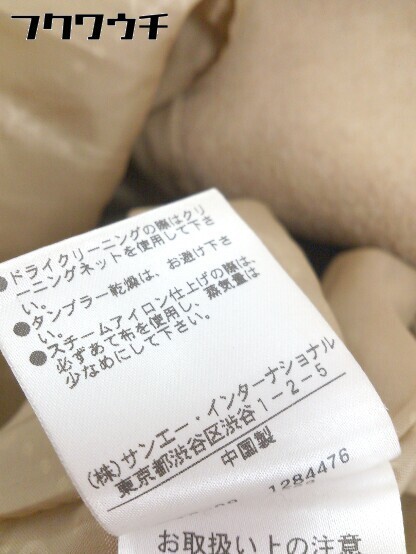 フクワウチ
●ドライクリーニングの際はクリ
ーニングネットを使用して下さ
い。
●タンブラー乾燥は、お避け下さ
い。
●スチームアイロン仕上げの際は、
必ずあて布を使用し、蒸気量は
少なめにして下さい。
(株)サンエー・インターナショナル
東京都渋谷区渋谷1-2-5
中国製
1284476
お取扱い上の注意